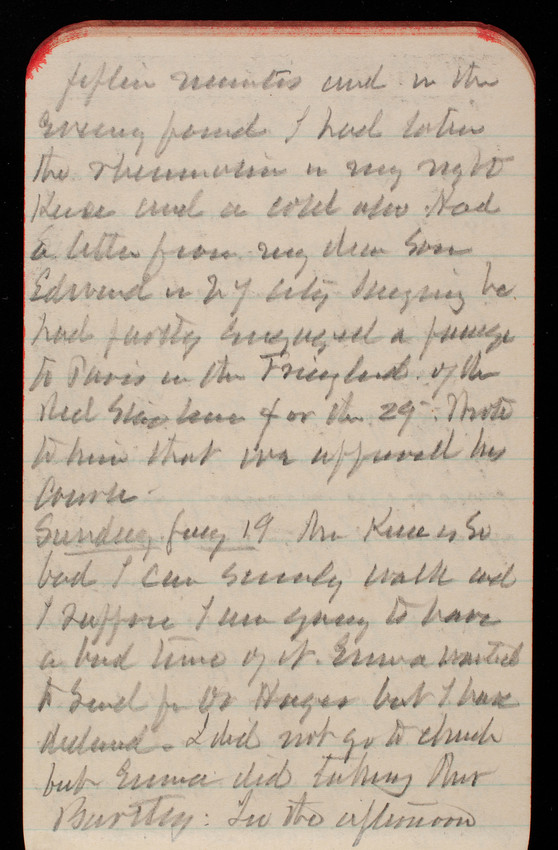 fifteen minutes and in the
evening found I had taken
the rheumatism in my right
Knee and a cold also. Had
a letter from my dear Son
Edward in N Y City saying he
had partly engaged a passage
to Paris in the Friesland of the
Red Star line for the 29. Wrote
to him that we approved his
course.
Sunday Jany 19 The Knee is so
bad I can scarcely walk and
I suppose I am going to have
a bad time of it. Emma wanted
to send for Dr Hagen but I have
declined. I did not go to church
but Emma did taking Mrs
Bartley: In the afternoon